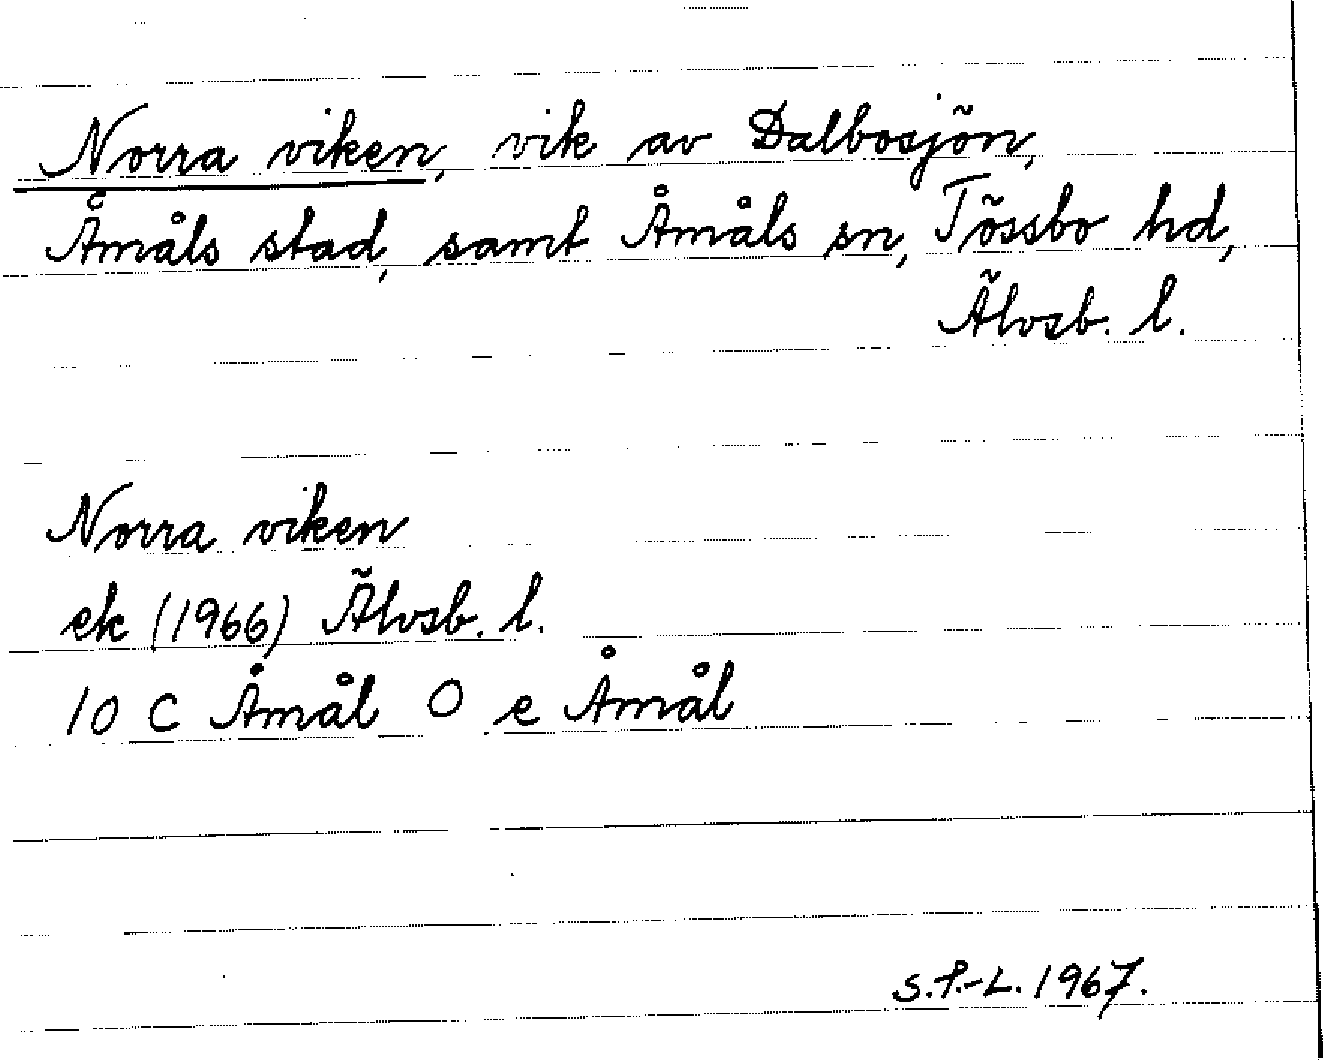 Norra viken, vik av Dalbosjön,
Åmåls stad, samt Åmåls sn, Tössbo hd,
Älvsb. l.
Norra viken
ek (1966) Älvsb. l.
10 C Åmål O e Åmål
S.P.-L. 1967.